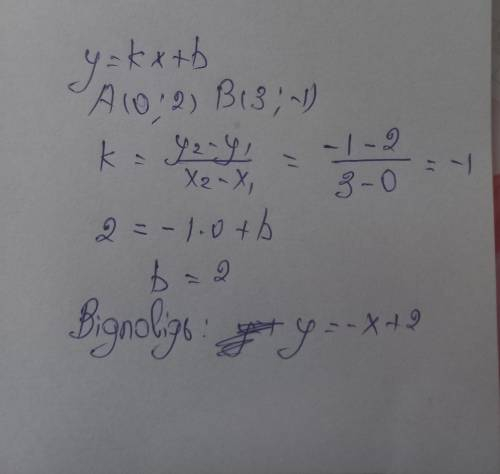 y = kx + b
A(0; 2) B(3; -1)
k = y₂ - y₁ / x₂ - x₁ = -1 - 2 / 3 - 0 = -1
2 = -1·0 + b
b = 2
Відповідь: y = -x + 2